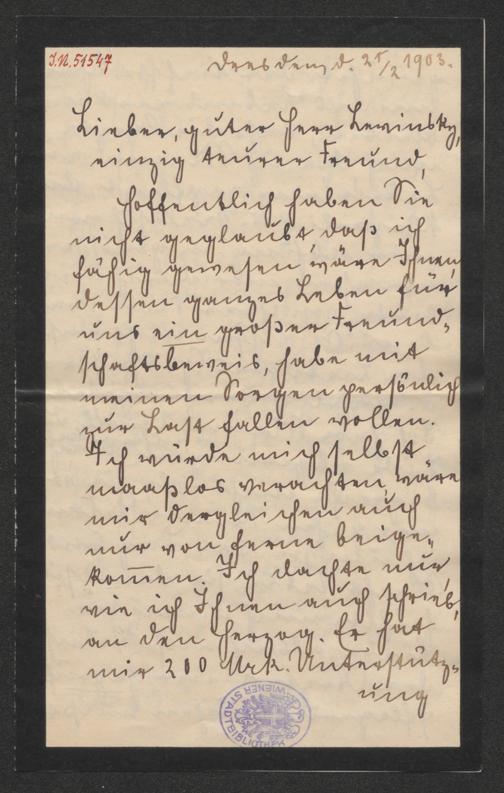 J.N. 51547
Dresden, d. 25/2 1903.
Lieber, guter Herr Lewinsky,
einzig teurer Freund,
Hoffentlich haben Sie
nicht geglaubt, daß ich
fähig gewesen wäre Ihnen,
dessen ganzes Leben für
uns ein großer Freund-
schaftsbeweis, habe mit
meinen Sorgen persönlich
zur Last fallen wollen.
Ich würde mich selbst
maaßlos verachten, wäre
mir dergleichen auch
nur von ferne beige-
kom̅en. Ich dachte nur,
wie ich Ihnen auch schrieb,
an den Herzog. Er hat
mir 200 Mrk. Unterstütz-
ung
WIENER STADTBIBLIOTHEK